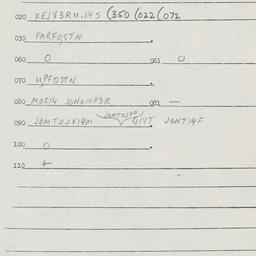 020 KEJV3RU.14S (350 (022 (072
030 FARFOSTN .
060 O 061 O
070 UPFOSTN .
080 MOC14 JONK14P3R 081 —
JOMTOJVA
090 JOMTOJV14M U14T JONT14F
100 O .
110 +